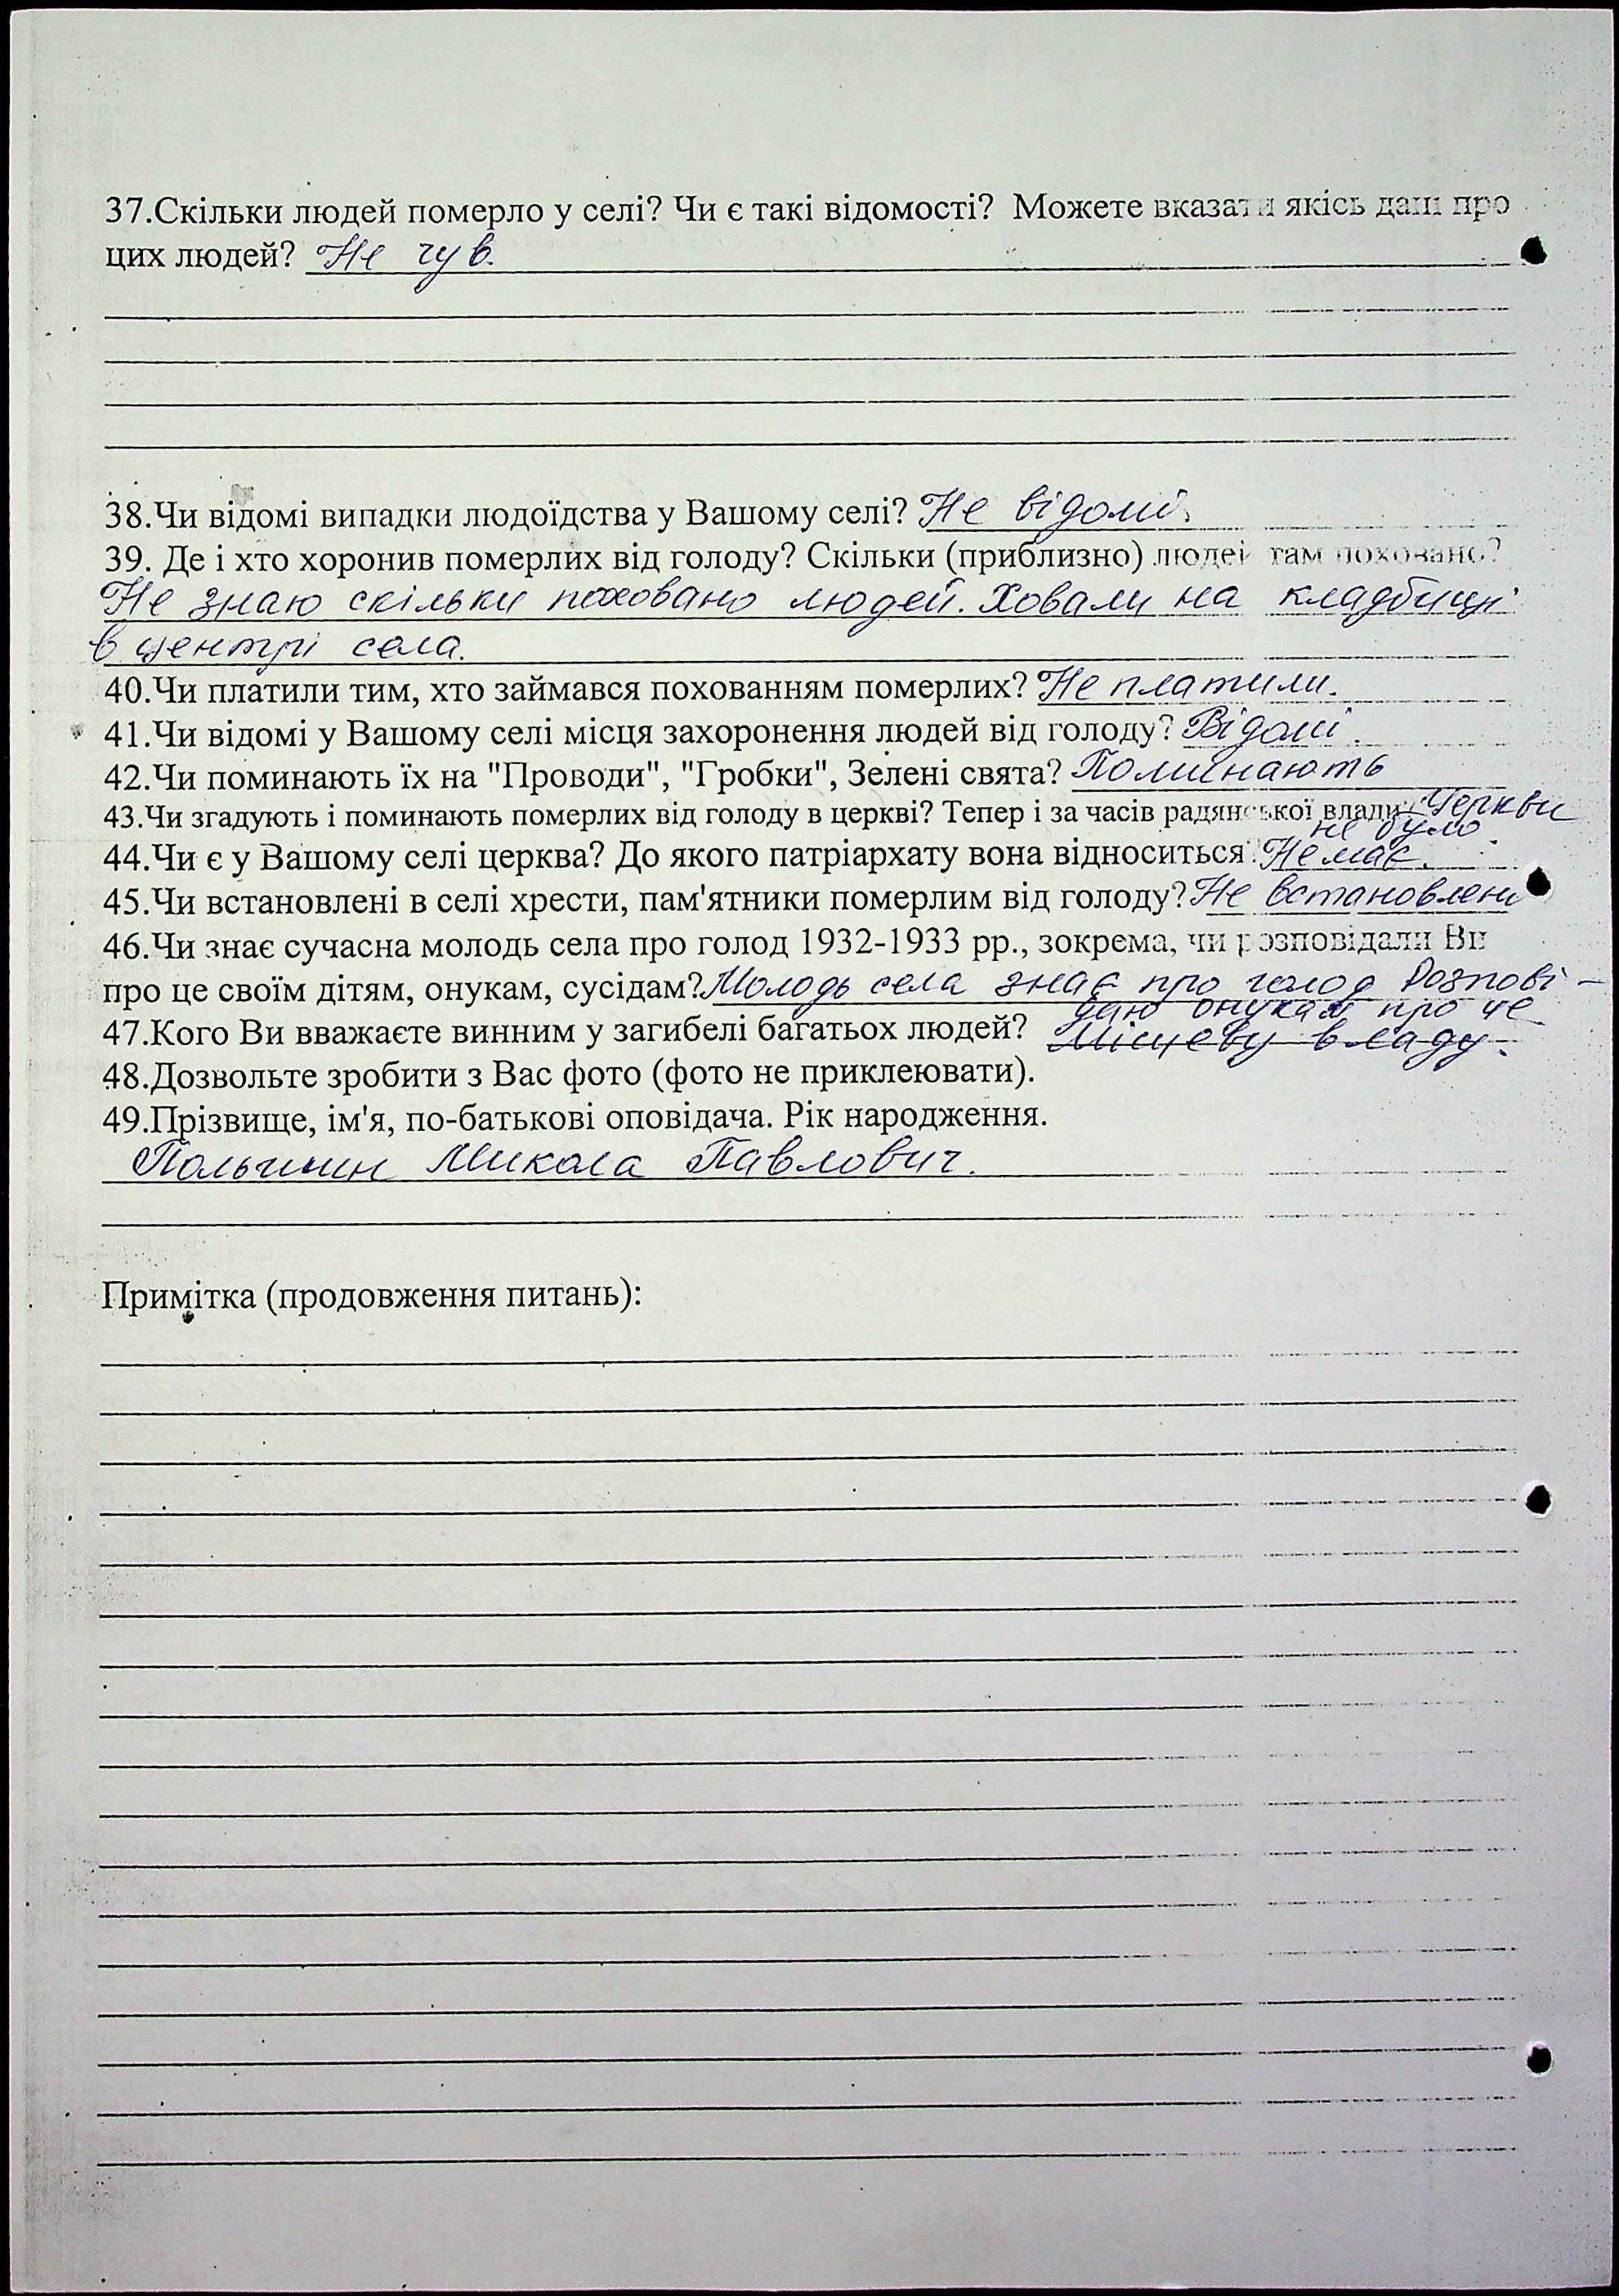 37.Скільки людей померло у селі? Чи є такі відомості? Можете вказати якісь дані про
цих людей? Не чув.
38.Чи відомі випадки людоїдства у Вашому селі? Не відомі.
39. Де і хто хоронив померлих від голоду? Скільки (приблизно) людей там поховано?
Не знаю скільки поховано людей. Ховали на кладбищі
в центрі села.
40.Чи платили тим, хто займався похованням померлих? Не платили.
41.Чи відомі у Вашому селі місця захоронення людей від голоду? Відомі.
42.Чи поминають їх на "Проводи", "Гробки", Зелені свята? Поминають
43.Чи згадують і поминають померлих від голоду в церкві? Тепер і за часів радянської влади? Церкви
не було
44.Чи є у Вашому селі церква? До якого патріархату вона відноситься? Немає.
45.Чи встановлені в селі хрести, пам'ятники померлим від голоду? Не встановлені
46.Чи знає сучасна молодь села про голод 1932-1933 рр., зокрема, чи розповідали Ви
про це своїм дітям, онукам, сусідам? Молодь села знає про голод Розпові-
даю онукам про це
47.Кого Ви вважаєте винним у загибелі багатьох людей? Місцеву владу.
48.Дозвольте зробити з Вас фото (фото не приклеювати).
49.Прізвище, ім'я, по-батькові оповідача. Рік народження.
Микола Павлович.
Примітка (продовження питань):